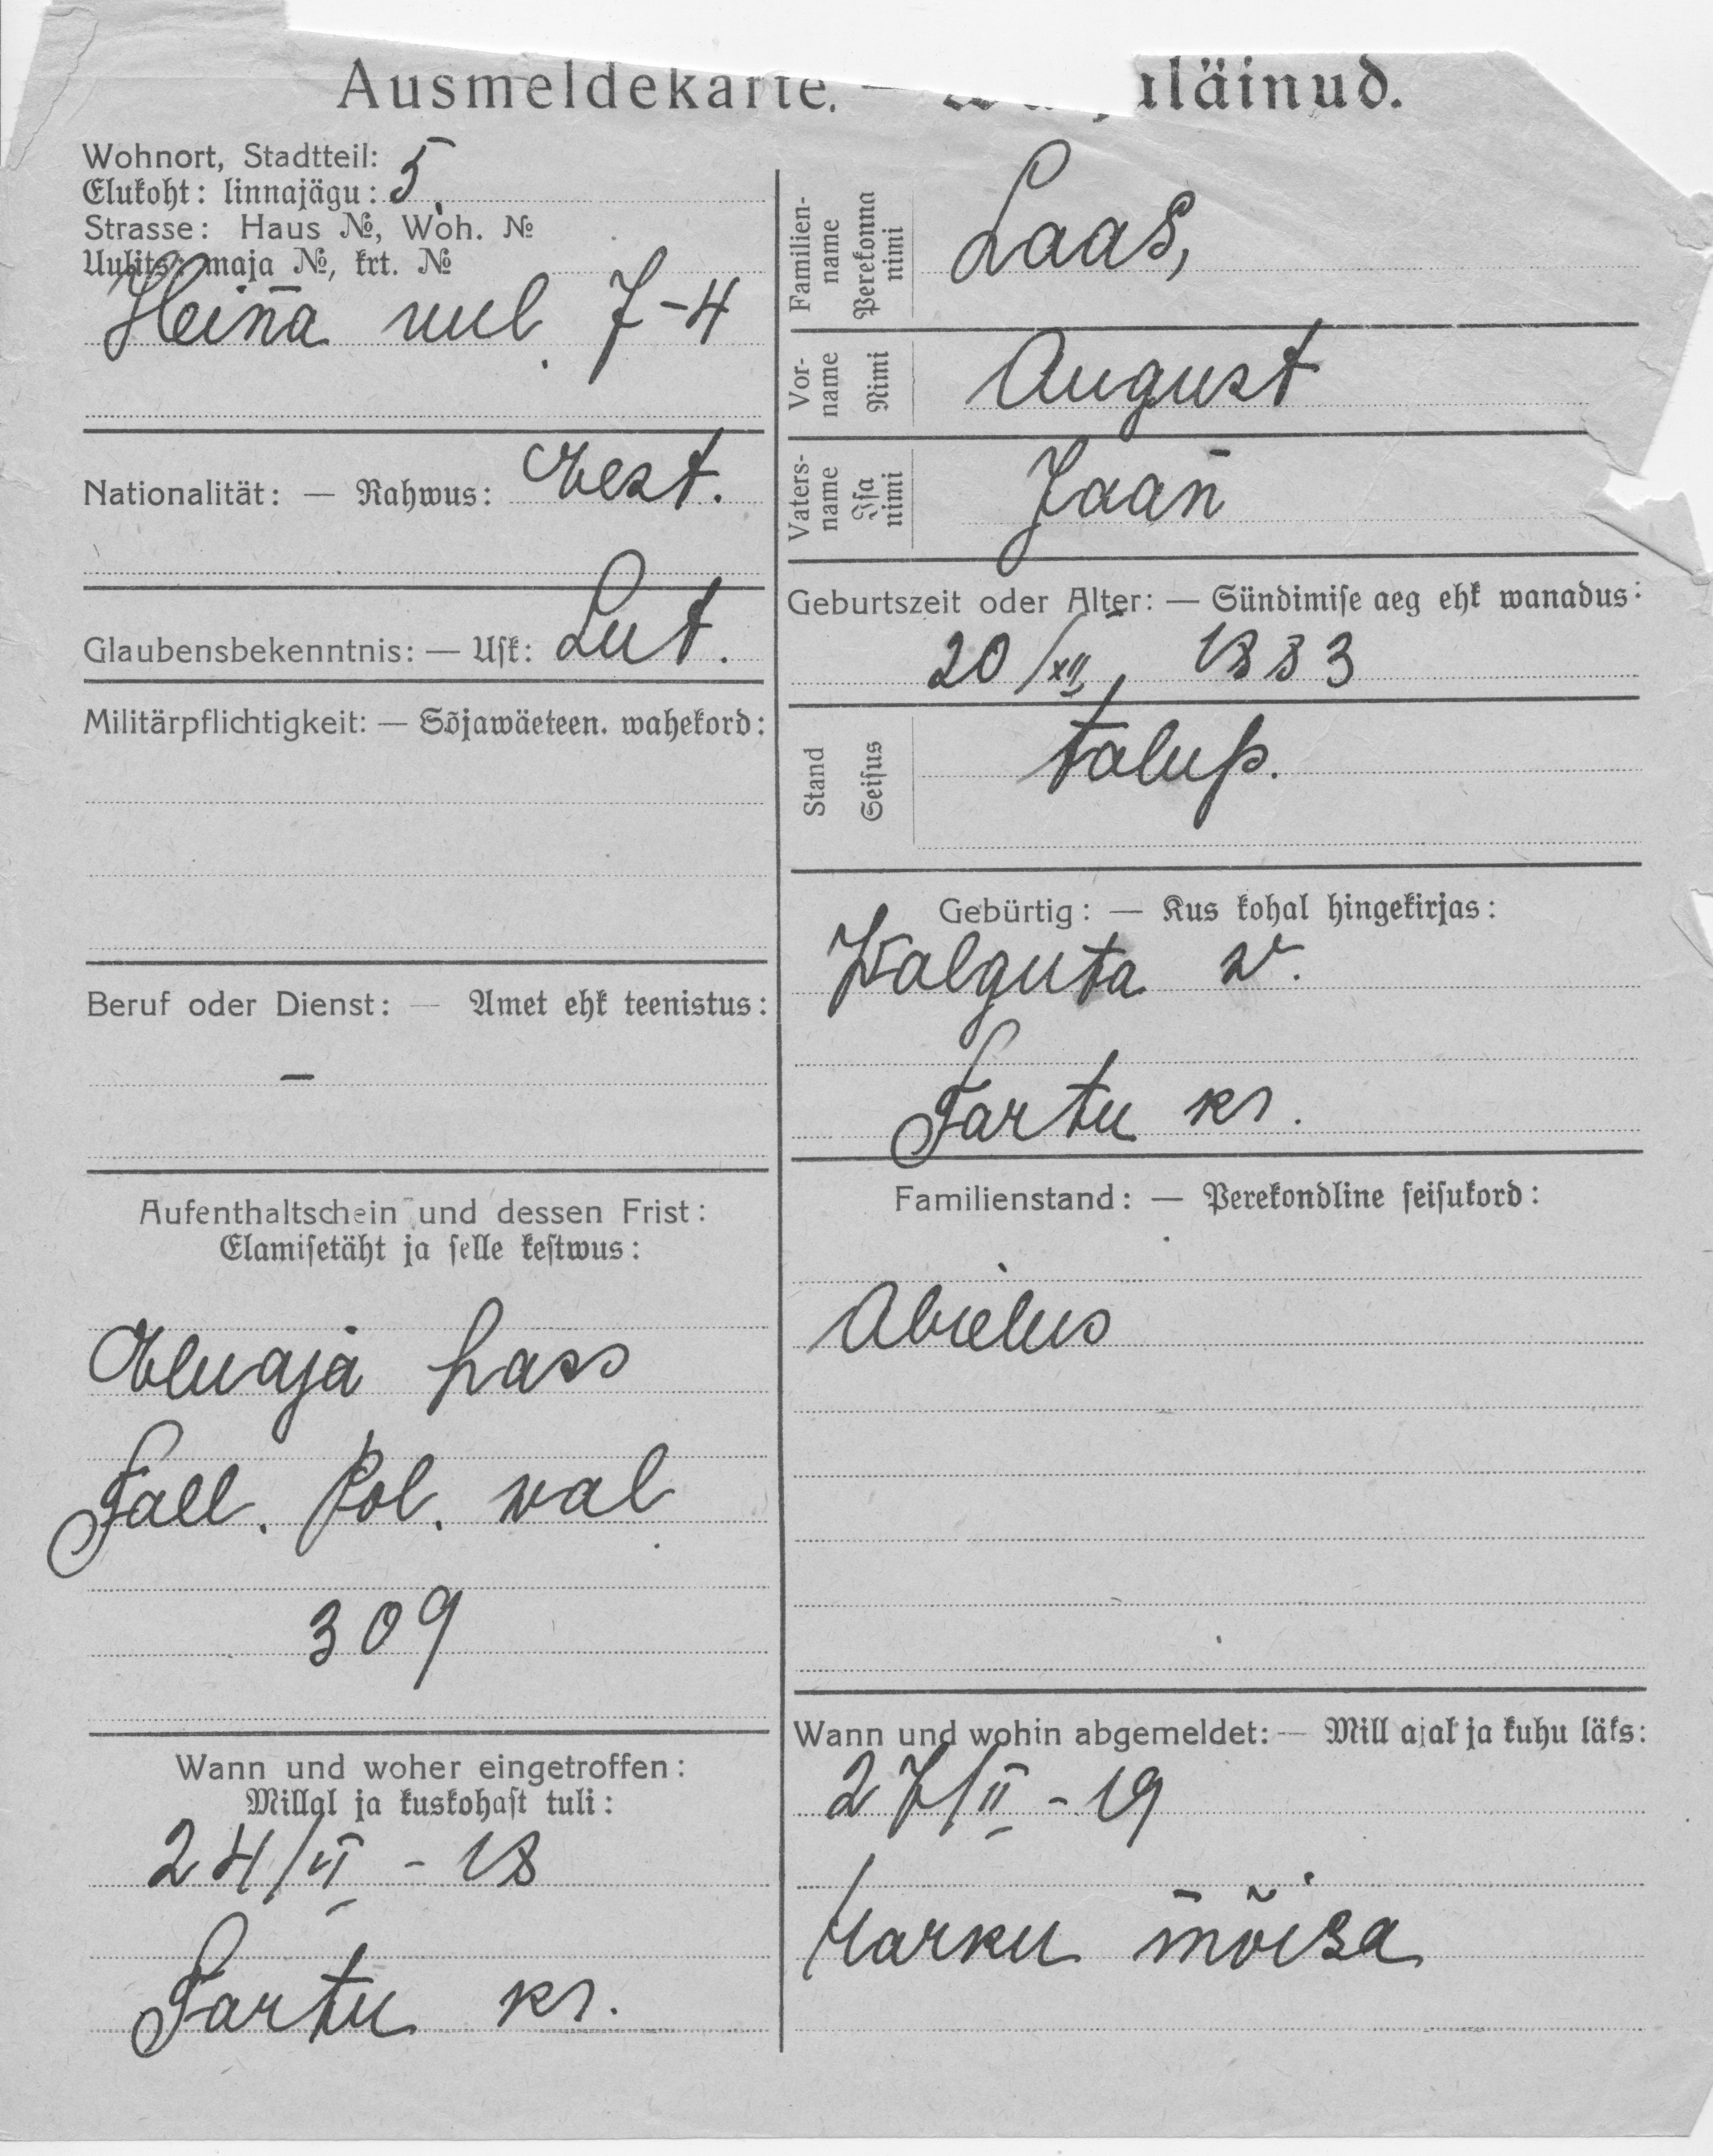 Ausmeldekarte. — läinud.
Wohnort, Stadtteil:
Elukoht: linnajägu: 5.
Strasse: Haus №, Woh. №
Uulits: maja №, krt. №
Heina uul. 7-4
Nationalität: — Rahwus: Eest.
Glaubensbekenntnis: — Usk: Lut.
Militärpflichtigkeit: — Sõjawäeteen. wahekord:
Beruf oder Dienst: — Amet ehk teenistus:
—
Aufenthaltschein und dessen Frist:
Elamisetäht ja selle kestwus:
Eluaja pass
Tall. Pol. wal
309
Wann und woher eingetroffen:
Millal ja kuskohast tuli:
24/II - 18
Tartu kr.
Familien-
name
Perekonna
nimi
Laas,
Vor-
name
Nimi
August
Vaters-
name
Isa
nimi
Jaan
Geburtszeit oder Alter: — Sündimise aeg ehk wanadus:
20/XII, 1883
Stand
Seisus
talup.
Gebürtig: — Kus kohal hingekirjas:
Walguta v.
Tartu kr.
Familienstand: — Perekondline seisukord:
Abielus
Wann und wohin abgemeldet: — Mill ajal ja kuhu läks:
27/II - 19
Harku mõisa